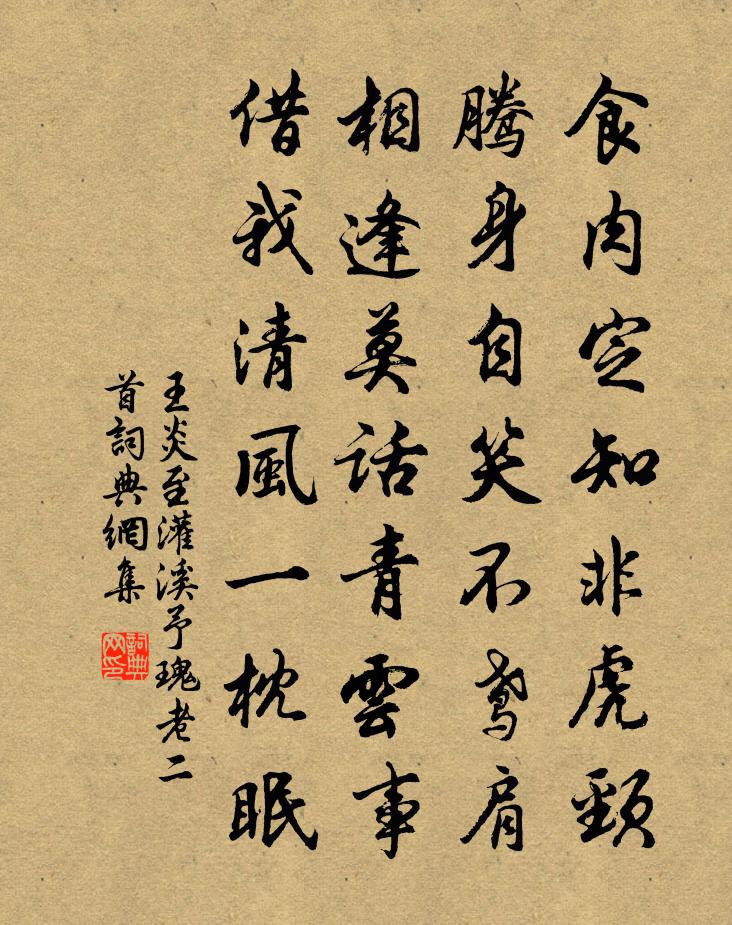 食肉定知非虎頸
騰身自笑不鳶肩
相逢莫話青雲事
借我清風一枕眠
王炎至灌溪予瑰老二
首詞典網集
詞典网印